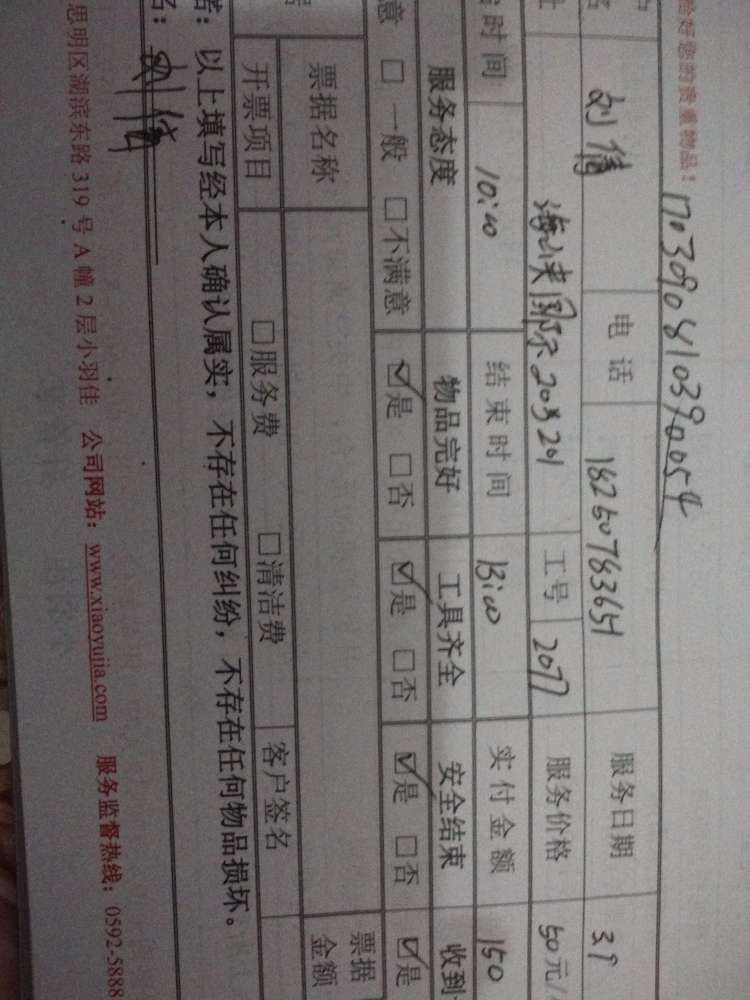 好您的贵重物品！
1703090810390054
刘倩 电话 18250783651 服务日期 3.9
工号 2077 服务价格 50元/
时间 10:00 结束时间 13:00 实付金额 150
服务态度 物品完好 工具齐全 安全结束 收到
意 □一般 □不满意 ☑是 □否 ☑是 □否 ☑是 □否 ☑是
票据名称 票据金额
开票项目 □服务费 □清洁费 客户签名
：以上填写经本人确认属实，不存在任何纠纷，不存在任何物品损坏。
名：刘倩
思明区湖滨东路 319 号 A 幢 2 层小羽佳 公司网站：www.xiaoyujia.com 服务监督热线：0592-5888